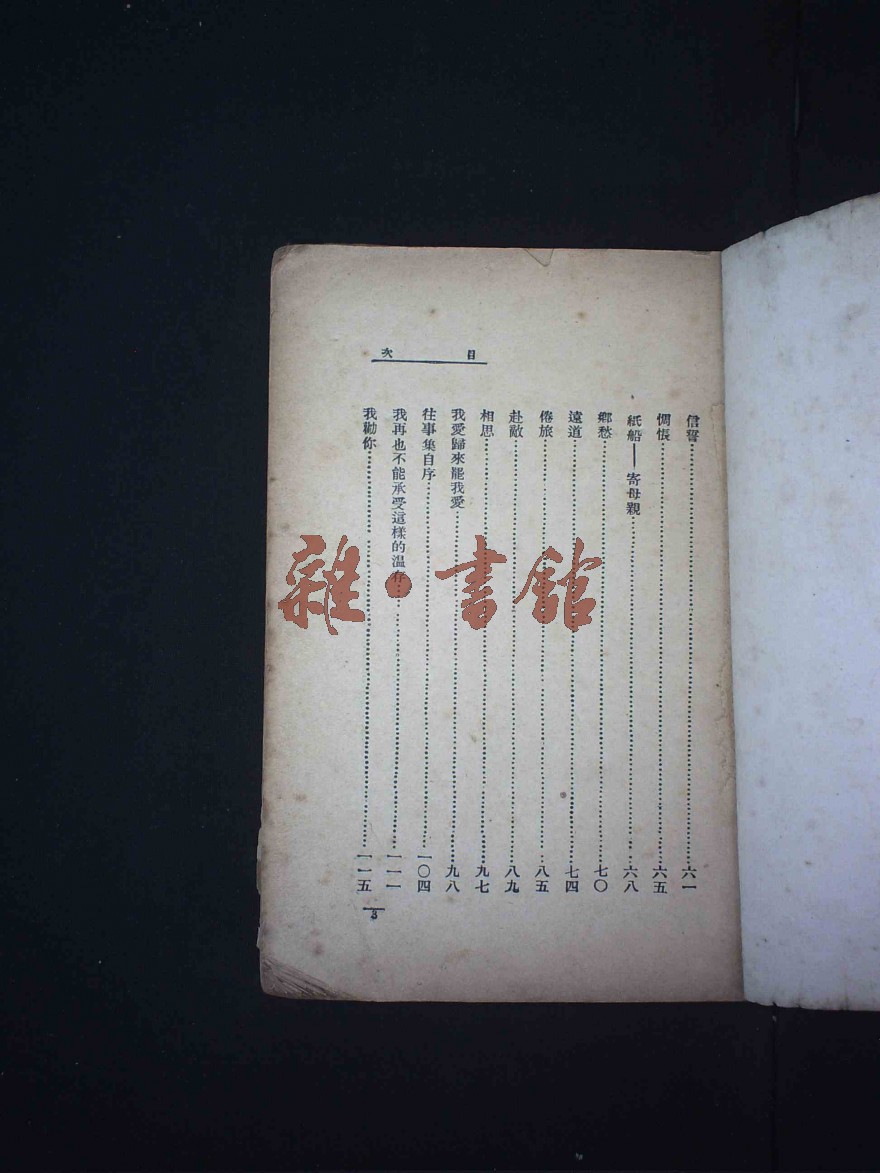 目次
信誓……六一
惆悵……六五
紙船——寄母親……六八
鄉愁……七〇
遠道……七四
倦旅……八五
赴敵……八九
相思……九七
我愛歸來罷我愛……九八
往事集自序……一〇四
我再也不能承受這樣的溫存……一一一
我勸你……一一五
3
雜·書館